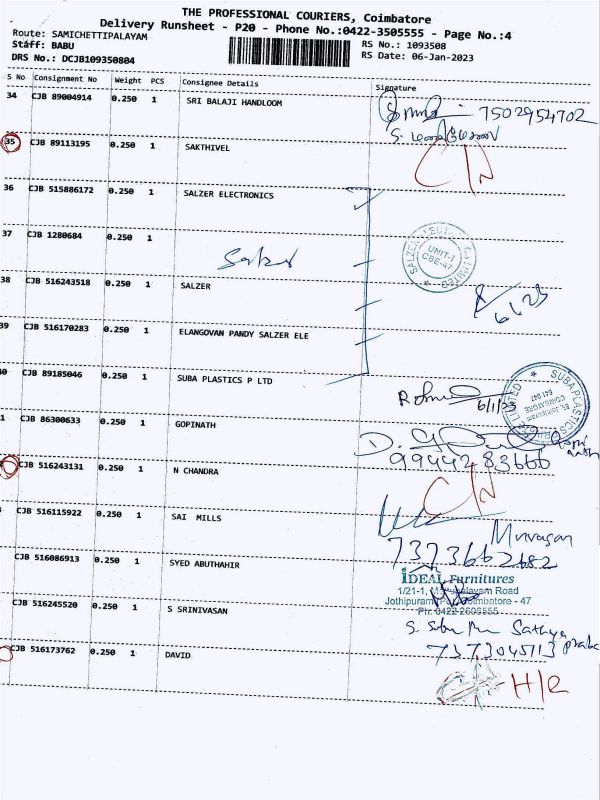 THE PROFESSIONAL COURIERS, Coimbatore
Delivery Runsheet - P20 - Phone No.:0422-3505555 - Page No.:4
Route: SAMICHETTIPALAYAM
Staff: BABU
RS No.: 1093508
DRS No.: DCJB109350804
RS Date: 06-Jan-2023
S No Consignment No Weight PCS Consignee Details Signature
34 CJB 89004914 0.250 1 SRI BALAJI HANDLOOM
7502954702
35 CJB 89113195 0.250 1 SAKTHIVEL
C/N
36 CJB 515886172 0.250 1 SALZER ELECTRONICS
37 CJB 1280684 0.250 1
Salzer
UNIT-I
CBE-47
38 CJB 516243518 0.250 1 SALZER
6/1/23
39 CJB 516170283 0.250 1 ELANGOVAN PANDY SALZER ELE
40 CJB 89185046 0.250 1 SUBA PLASTICS P LTD
6/1/23
SUBA PLASTICS
LIMITED
COIMBATORE
641 047
1 CJB 86300633 0.250 1 GOPINATH
9944283666
CJB 516243131 0.250 1 N CHANDRA
C/N
CJB 516115922 0.250 1 SAI MILLS
7373662682
CJB 516086913 0.250 1 SYED ABUTHAHIR
IDEAL Furnitures
1/21-1,
Road
Jothipuram Coimbatore - 47
Ph: 0422-2606555
CJB 516245520 0.250 1 S SRINIVASAN
Sathya
7373045113
CJB 516173762 0.250 1 DAVID
H/R